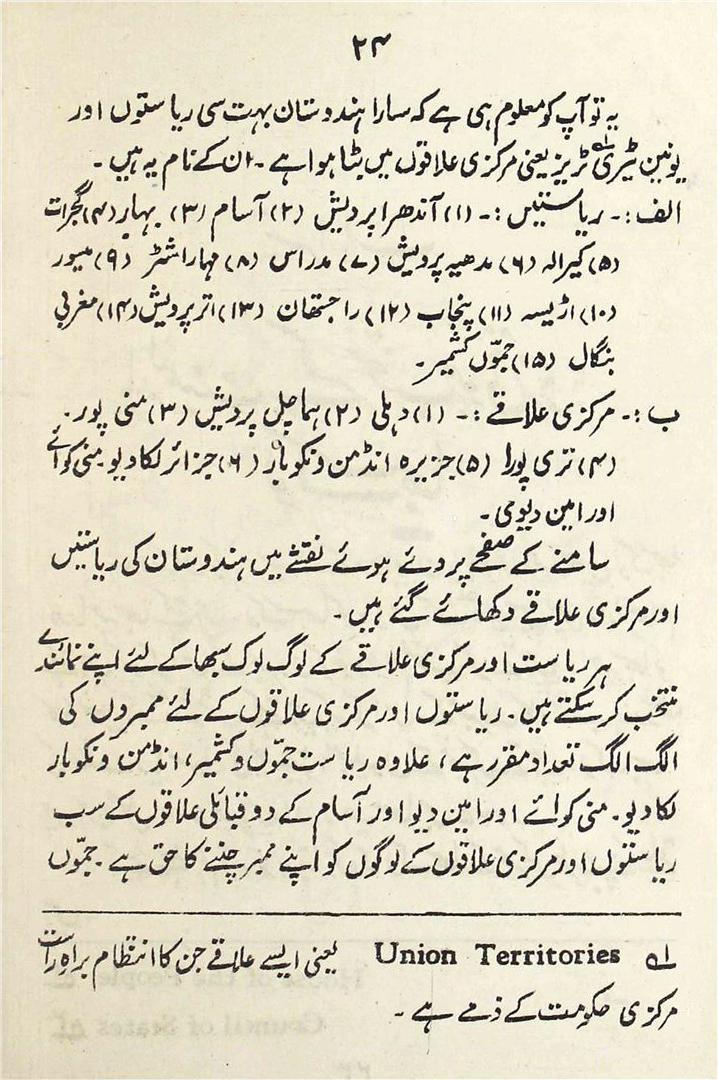 ۲۴
یہ تو آپ کو معلوم ہی ہے کہ سارا ہندوستان بہت سی ریاستوں اور
یونین ٹیری ٹریز لہ یعنی مرکزی علاقوں میں بٹا ہوا ہے ۔ ان کے نام یہ ہیں ۔
الف :۔ ریاستیں :۔ (۱) آندھرا پردیش (۲) آسام (۳) بہار (۴) گجرات
(۵) کیرالہ (۶) مدھیہ پردیش (۷) مدراس (۸) مہاراشٹر (۹) میسور
(۱۰) اڑیسہ (۱۱) پنجاب (۱۲) راجستھان (۱۳) اتر پردیش (۱۴) مغربی
بنگال (۱۵) جموّں کشمیر۔
ب :۔ مرکزی علاقے :۔ (۱) دہلی (۲) ہماچل پردیش (۳) منی پور۔
(۴) تری پورا (۵) جزیرہ انڈمن و نکوبار (۶) جزائر لکادیو۔ منی کوائے
اور امین دیوی ۔
سامنے کے صفحے پر دئے ہوئے نقشے میں ہندوستان کی ریاستیں
اور مرکزی علاقے دکھائے گئے ہیں ۔
ہر ریاست اور مرکزی علاقے کے لوگ لوک سبھا کے لئے اپنے نمائندے
منتخب کر سکتے ہیں ۔ ریاستوں اور مرکزی علاقوں کے لئے ممبروں کی
الگ الگ تعداد مقرر ہے ، علاوہ ریاست جموّں و کشمیر، انڈمن و نکوبار
لکادیو۔ منی کوائے اور امین دیو اور آسام کے دو قبائلی علاقوں کے سب
ریاستوں اور مرکزی علاقوں کے لوگوں کو اپنے ممبر چننے کا حق ہے ۔ جموّں
لہ Union Territories یعنی ایسے علاقے جن کا انتظام براہِ راست
مرکزی حکومت کے ذمے ہے ۔